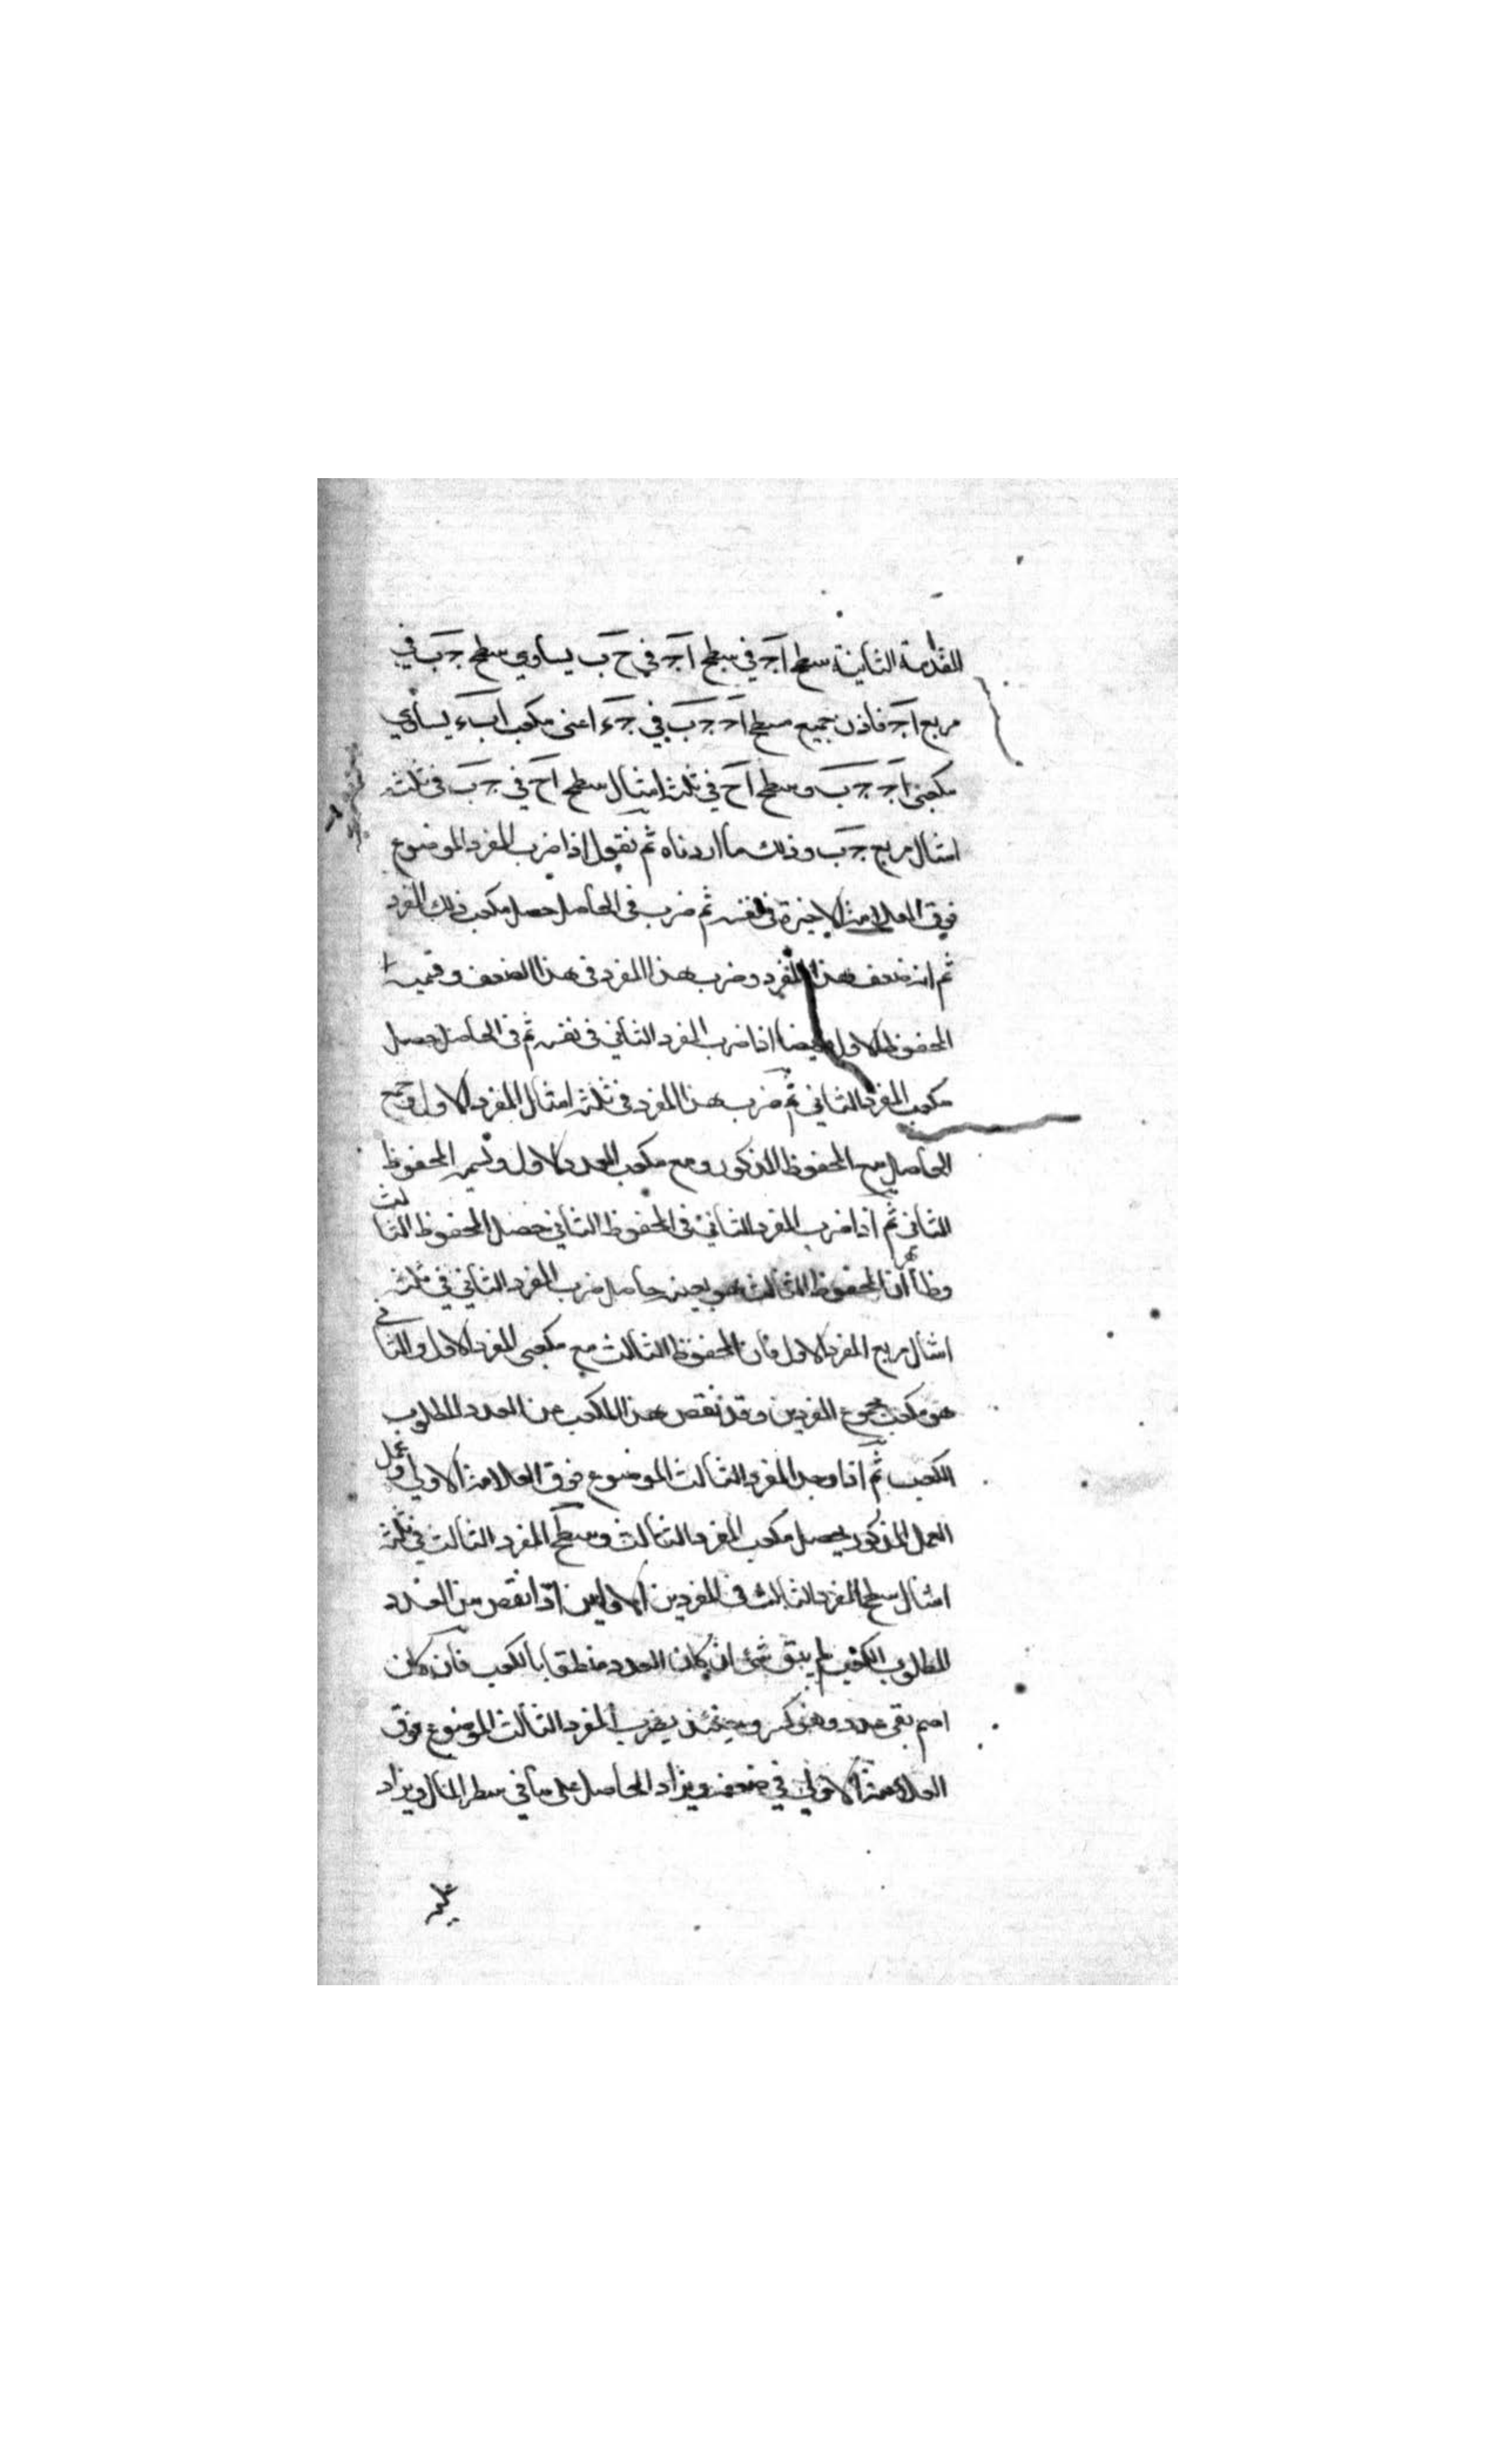 المقدمة الثانية سطح اجـ في سطح اجـ في جـ ب يساوي سطح جـ ب في
مربع اجـ فاذن جميع سطح اجـ جـ ب في جـ ء اعنى مكعب اب ء يساوي
مكعبى اجـ جـ ب وسطح اح في ثلثة امثال سطح اح في جـ ب فى ثلثة
امثال مربع جـ ب وذلك ما اردناه ثم نقول اذا ضرب المفرد الموضوع
فوق العلامة الاخيرة فى نفسه ثم ضرب فى الحاصل حصل مكعب ذلك المفرد
ثم انه ضعف هذا المفرد وضرب هذا المفرد فى هذا الضعف وقميه
المحفوظ الاول وايضا اذا ضرب المفرد الثاني فى نفسه ثم فى الحاصل حصل
مكعب المفرد الثاني ثم ضرب هذا المفرد فى ثلثة امثال المفرد الاول وجمع
الحاصل مع المحفوظ المذكور ومع مكعب العدد الاول ونسميه المحفوظ
الثاني ثم اذا ضرب المفرد الثاني فى المحفوظ الثاني حصل المحفوظ الثالث
وظاهر ان المحفوظ الثالث هو بعينه حاصل ضرب المفرد الثاني في ثلثة
امثال مربع المفرد الاول فان المحفوظ الثالث مع مكعبى المفرد الاول والثاني
هو مكعب مجموع المفردين وقد نقص هذا المكعب من العدد المطلوب
الكعب ثم اذا وجد المفرد الثالث الموضوع فوق العلامة الاولي وعمل
العمل المذكور يحصل مكعب المفرد الثالث وسطح المفرد الثالث في ثلثة
امثال سطح المفرد الثالث فى المفردين الاولين اذا نقص من العدد
المطلوب الكعب لم يبق شئ ان كان العدد منطقا بالكعب فان كان
اصم بقى عدد وهو كسر وحينئذ يضرب المفرد الثالث الموضوع فوق
العلامة الاولي في ضعفه ويزاد الحاصل على ما في سطر المال ويزاد